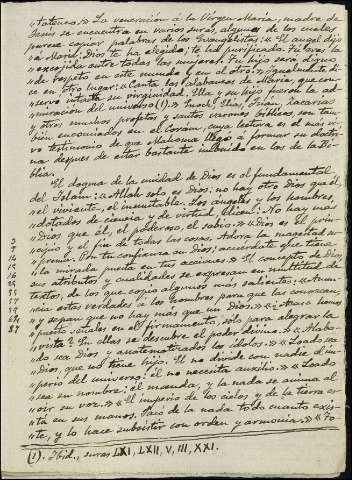 «tatense.» La veneración á la Virgen María, madre de
Jesús se encuentra en varios suras, algunos de los cuales
parece copiar palabras de los Evangelistas: «El angel dijo
»á María, Dios te ha elegido, te ha purificado. Tu eres la
»escogida entre todas las mujeres. Tu hijo será digno
»de respeto en este mundo y en el otro.» Igualmente di-
ce en otro lugar: «Canta las alabanzas de María, que con-
»servó intacta su virginidad. Ella y su hijo fueron la ad-
»miración del universo (1).» Enoch, Elías, Juan, Zacarías
y otros muchos profetas y santos varones bíblicos son tam-
bien encomiados en el Coran, cuya lectura es el mas vi-
vo testimonio de que Mahoma llegó á formar su doctri-
na despues de estar bastante imbuido en las de la Bi-
blia.
El dogma de la unidad de Dios es el fundamental
del Islam: «Allah solo es Dios; no hay otro Dios que él,
»el viviente, el inmutable. Los ángeles y los hombres,
»dotados de ciencia y de virtud, dicen: No hay mas
»Dios que él, el poderoso, el sabio.» «Dios es El prin-
»cipio y el fin de todas las cosas. Adora la magestad su-
»prema. Pon tu confianza en Dios; acuérdate que tiene
»la mirada puesta en tus acciones.» El concepto de Dios
sus atributos y cualidades se expresan en multitud de
textos, de los que copio algunos mas salientes: «Anun-
»cia estas verdades á los hombres para que las conozcan,
»y sepan que no hay mas que un Dios.» «¿Acaso hemos
»puesto señales en el firmamento, sólo para alegrar la
»vista? En ellas se descubre el poder divino.» «Alaba-
»do sea Dios y anatematizados los ídolos.» «Loado sea
»Dios, que no tiene hijo. El no divide con nadie el im-
»perio del universo: él no necesita auxilio.» «Loado
»sea su nombre: él manda, y la nada se anima al
»oir su voz.» «El imperio de los cielos y de la tierra es-
»tá en sus manos. Sacó de la nada todo cuanto exis-
»te, y lo hace subsistir con orden y armonía.» «To-
(1). Ibid., suras LXI, LXII, V, III, XXI.